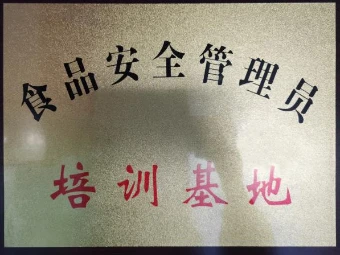 食品安全管理员
培训基地